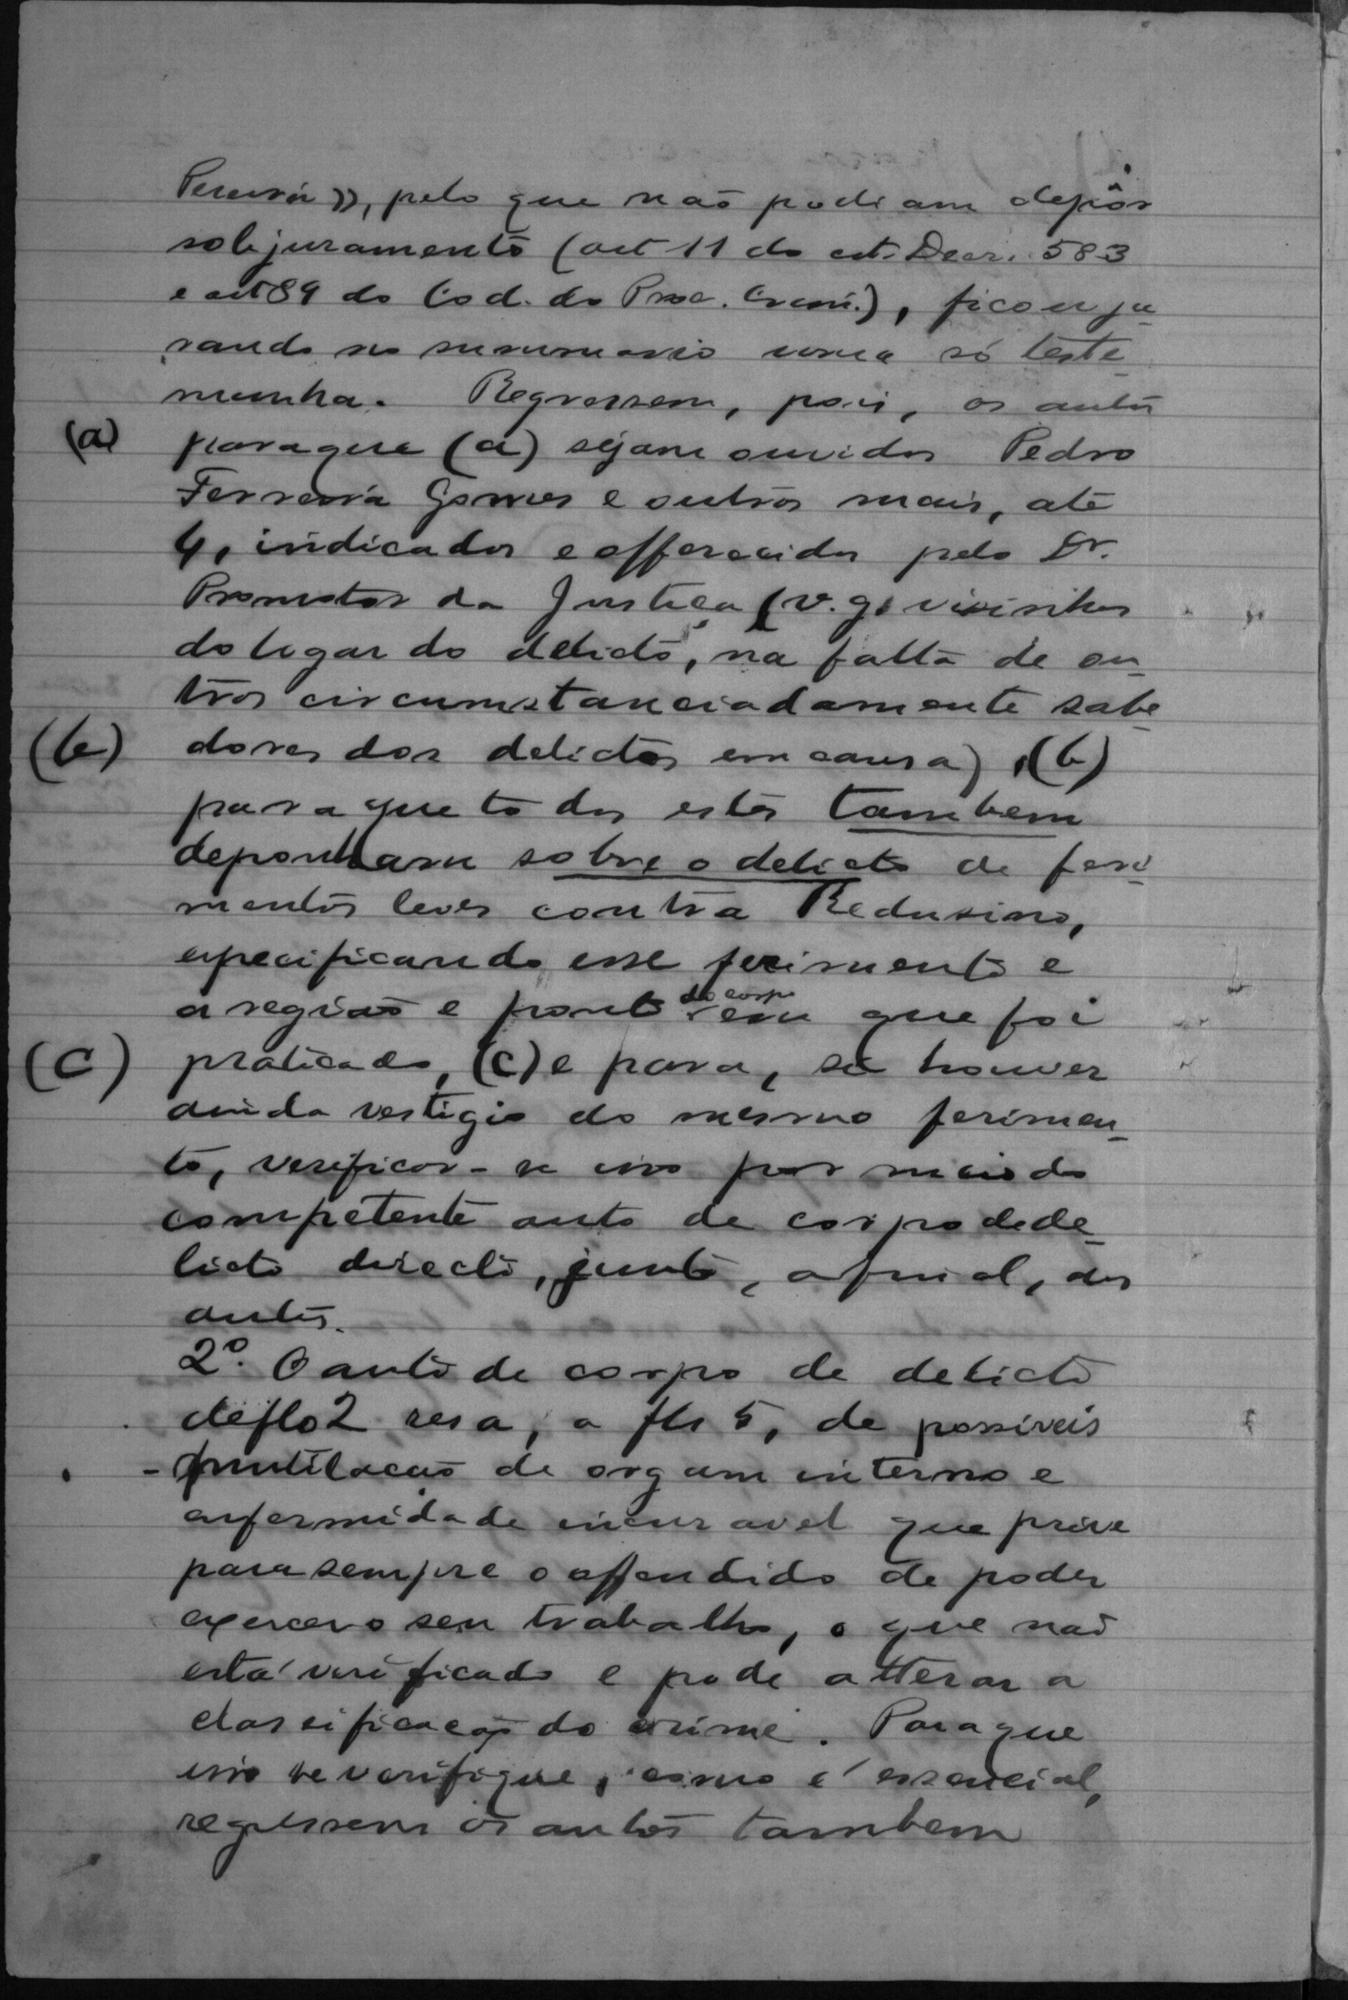 Pereira», pelo que não podiam depôr
sob juramento (art 11 do cit. Decr. 583
e art 89 do Cod. do Proc. Crim.), ficou ju-
rando no summario uma só teste-
munha. Regressem, pois, os autos
(a) para que (a) sejam ouvidos Pedro
Ferreira Gomes e outros mais, até
4, indicados e offerecidos pelo Dr.
Promotor da Justiça (v.g. visinhos
do logar do delicto, na falta de ou-
tros circumstanciadamente sabe-
(b) dores dos delictos em causa), (b)
para que todos estes tambem
deponham sobre o delicto de feri-
mentos leves contra Redusino,
especificando esse ferimento e
a região e ponto do corpo em que foi
(c) praticado, (c) e para, se houver
ainda vestigio do mesmo ferimen-
to, verificar-se isso por meio do
competente auto de corpo de de-
licto directo, junto, afinal, aos
autos.
2º. O auto de corpo de delicto
de fls 2 resa, a fls 5, de possiveis
mutilação de orgam interno e
enfermidade incuravel que prive
para sempre o offendido de poder
exercer o seu trabalho, o que não
está verificado e pode alterar a
classificação do crime. Para que
isso se verifique, como é essencial,
regressem os autos tambem